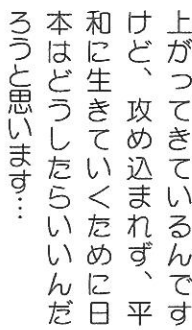 上がってきているんです
けど、攻め込まれず、平
和に生きていくために日
本はどうしたらいいんだ
ろうと思います…